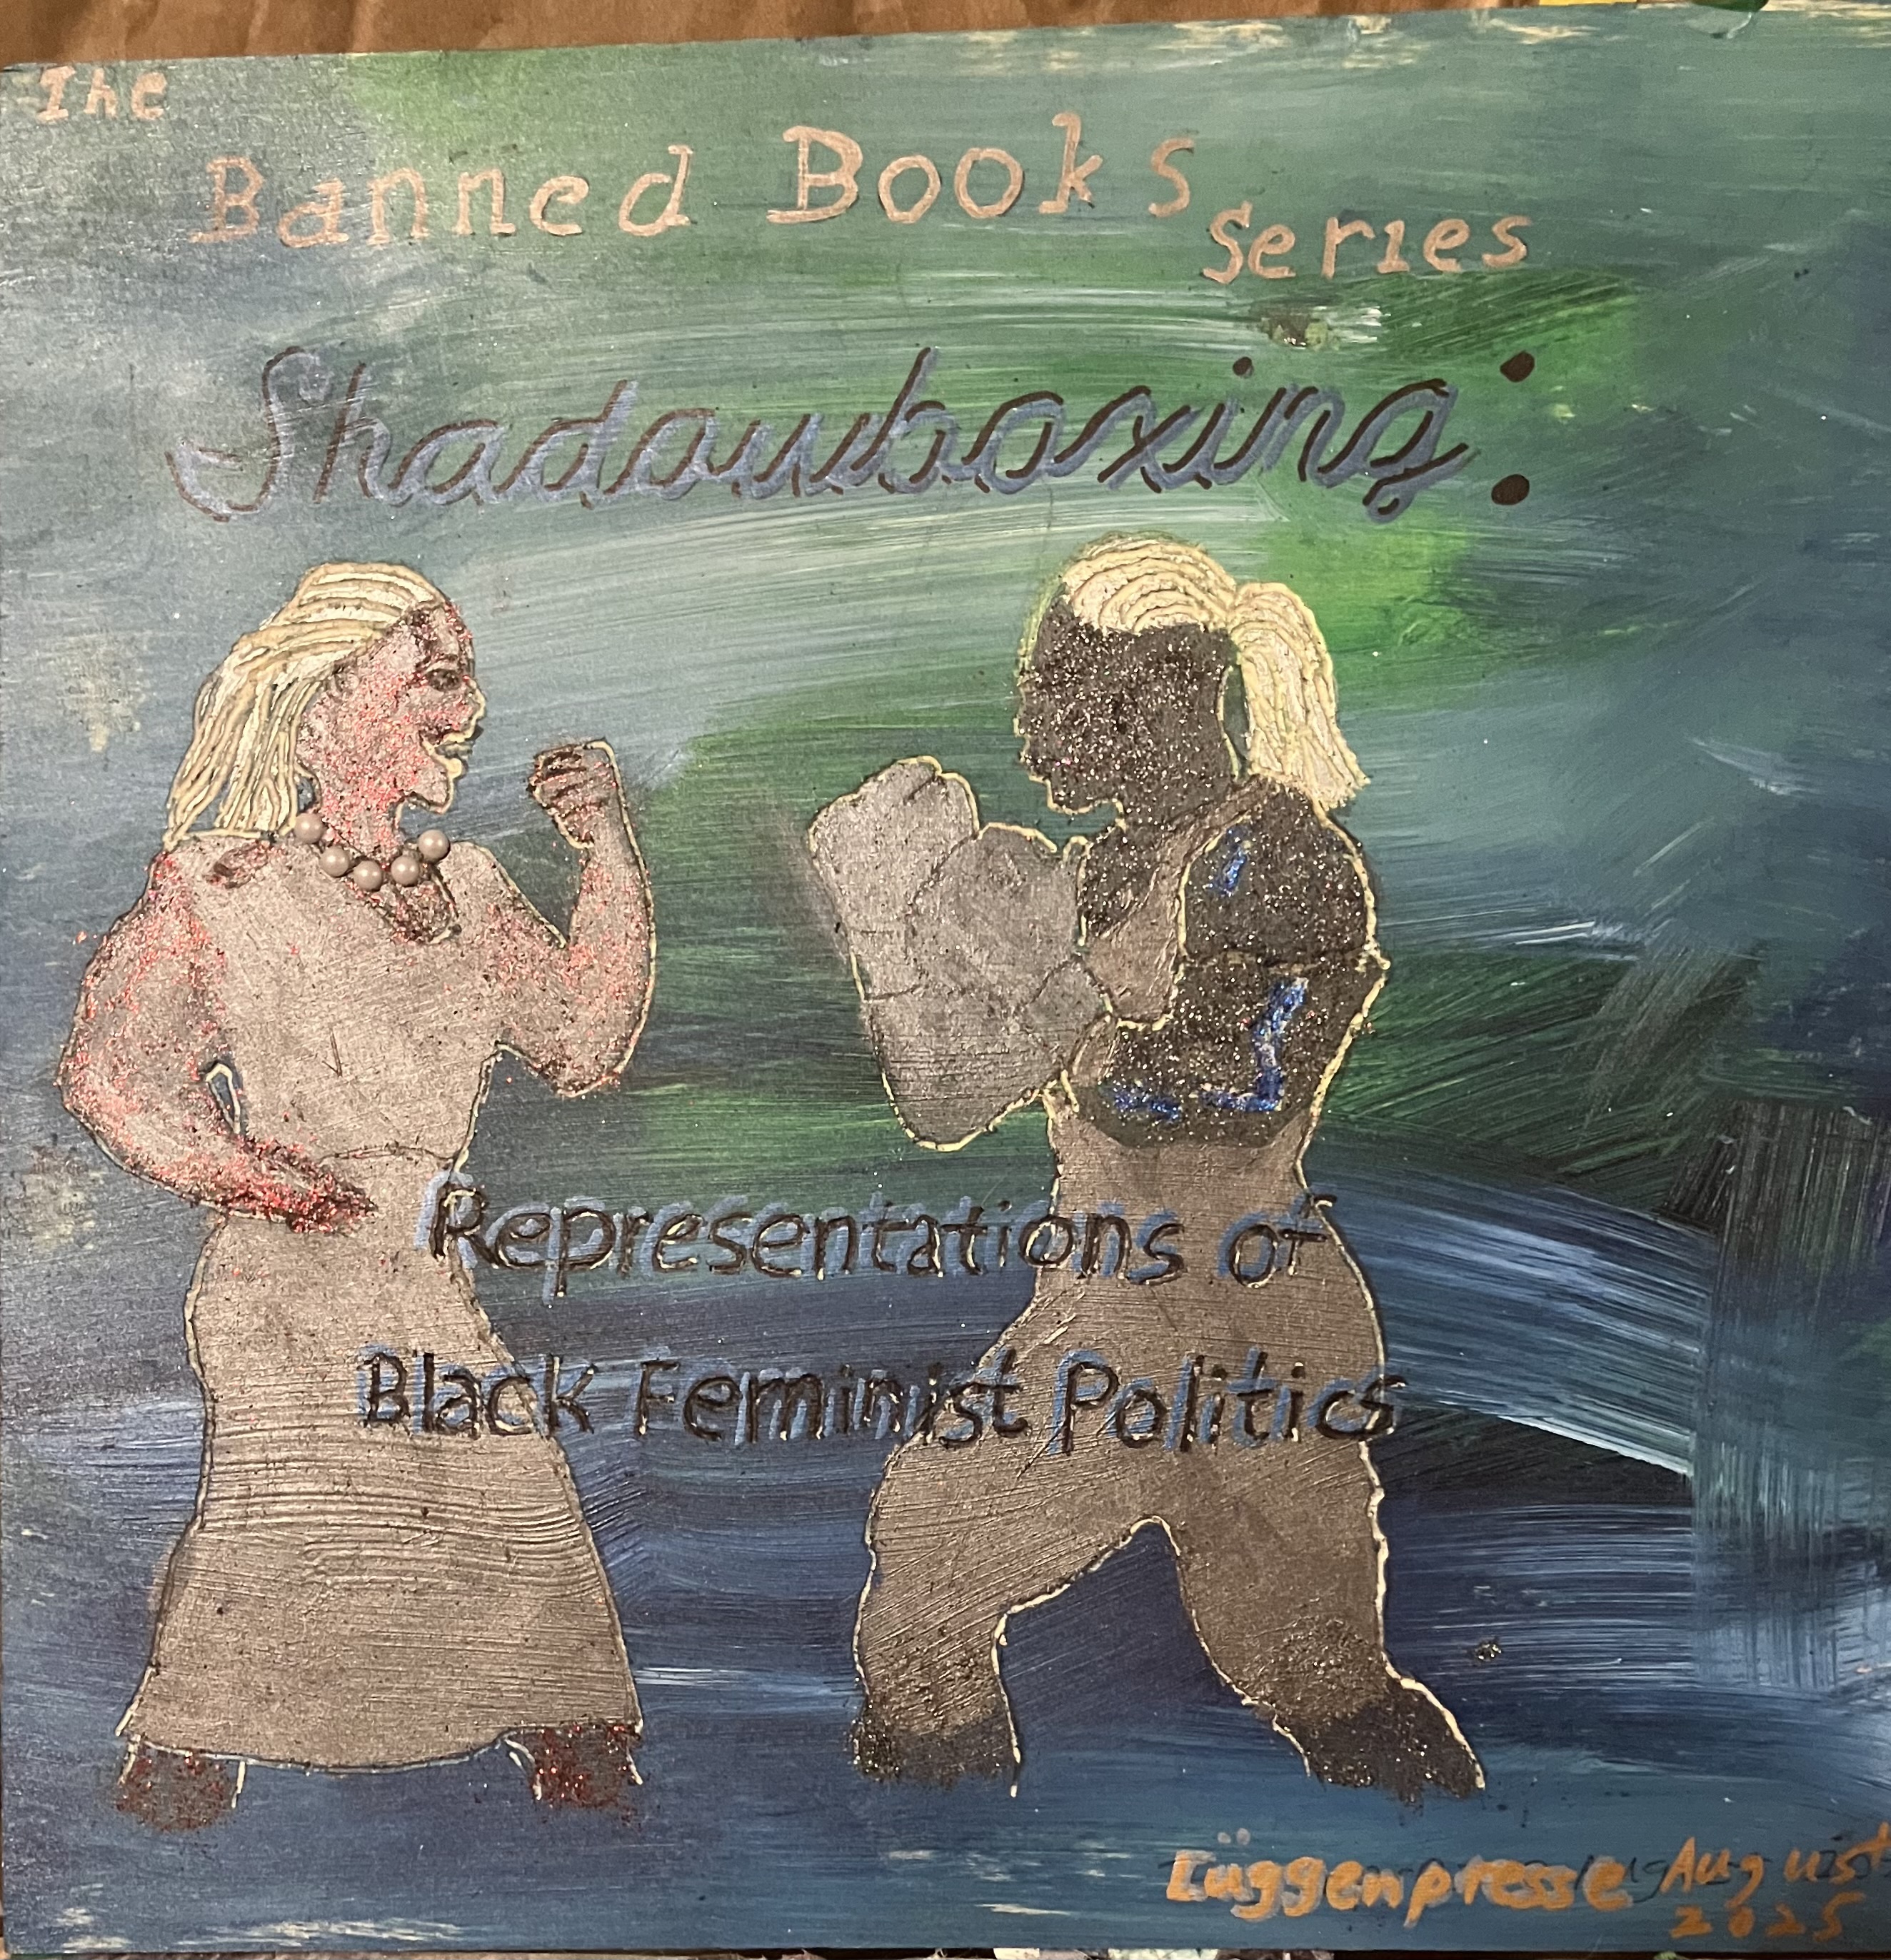 The
Banned Books
Series
Shadowboxing:
Representations of
Black Feminist Politics
Lüggenpresse August
2025